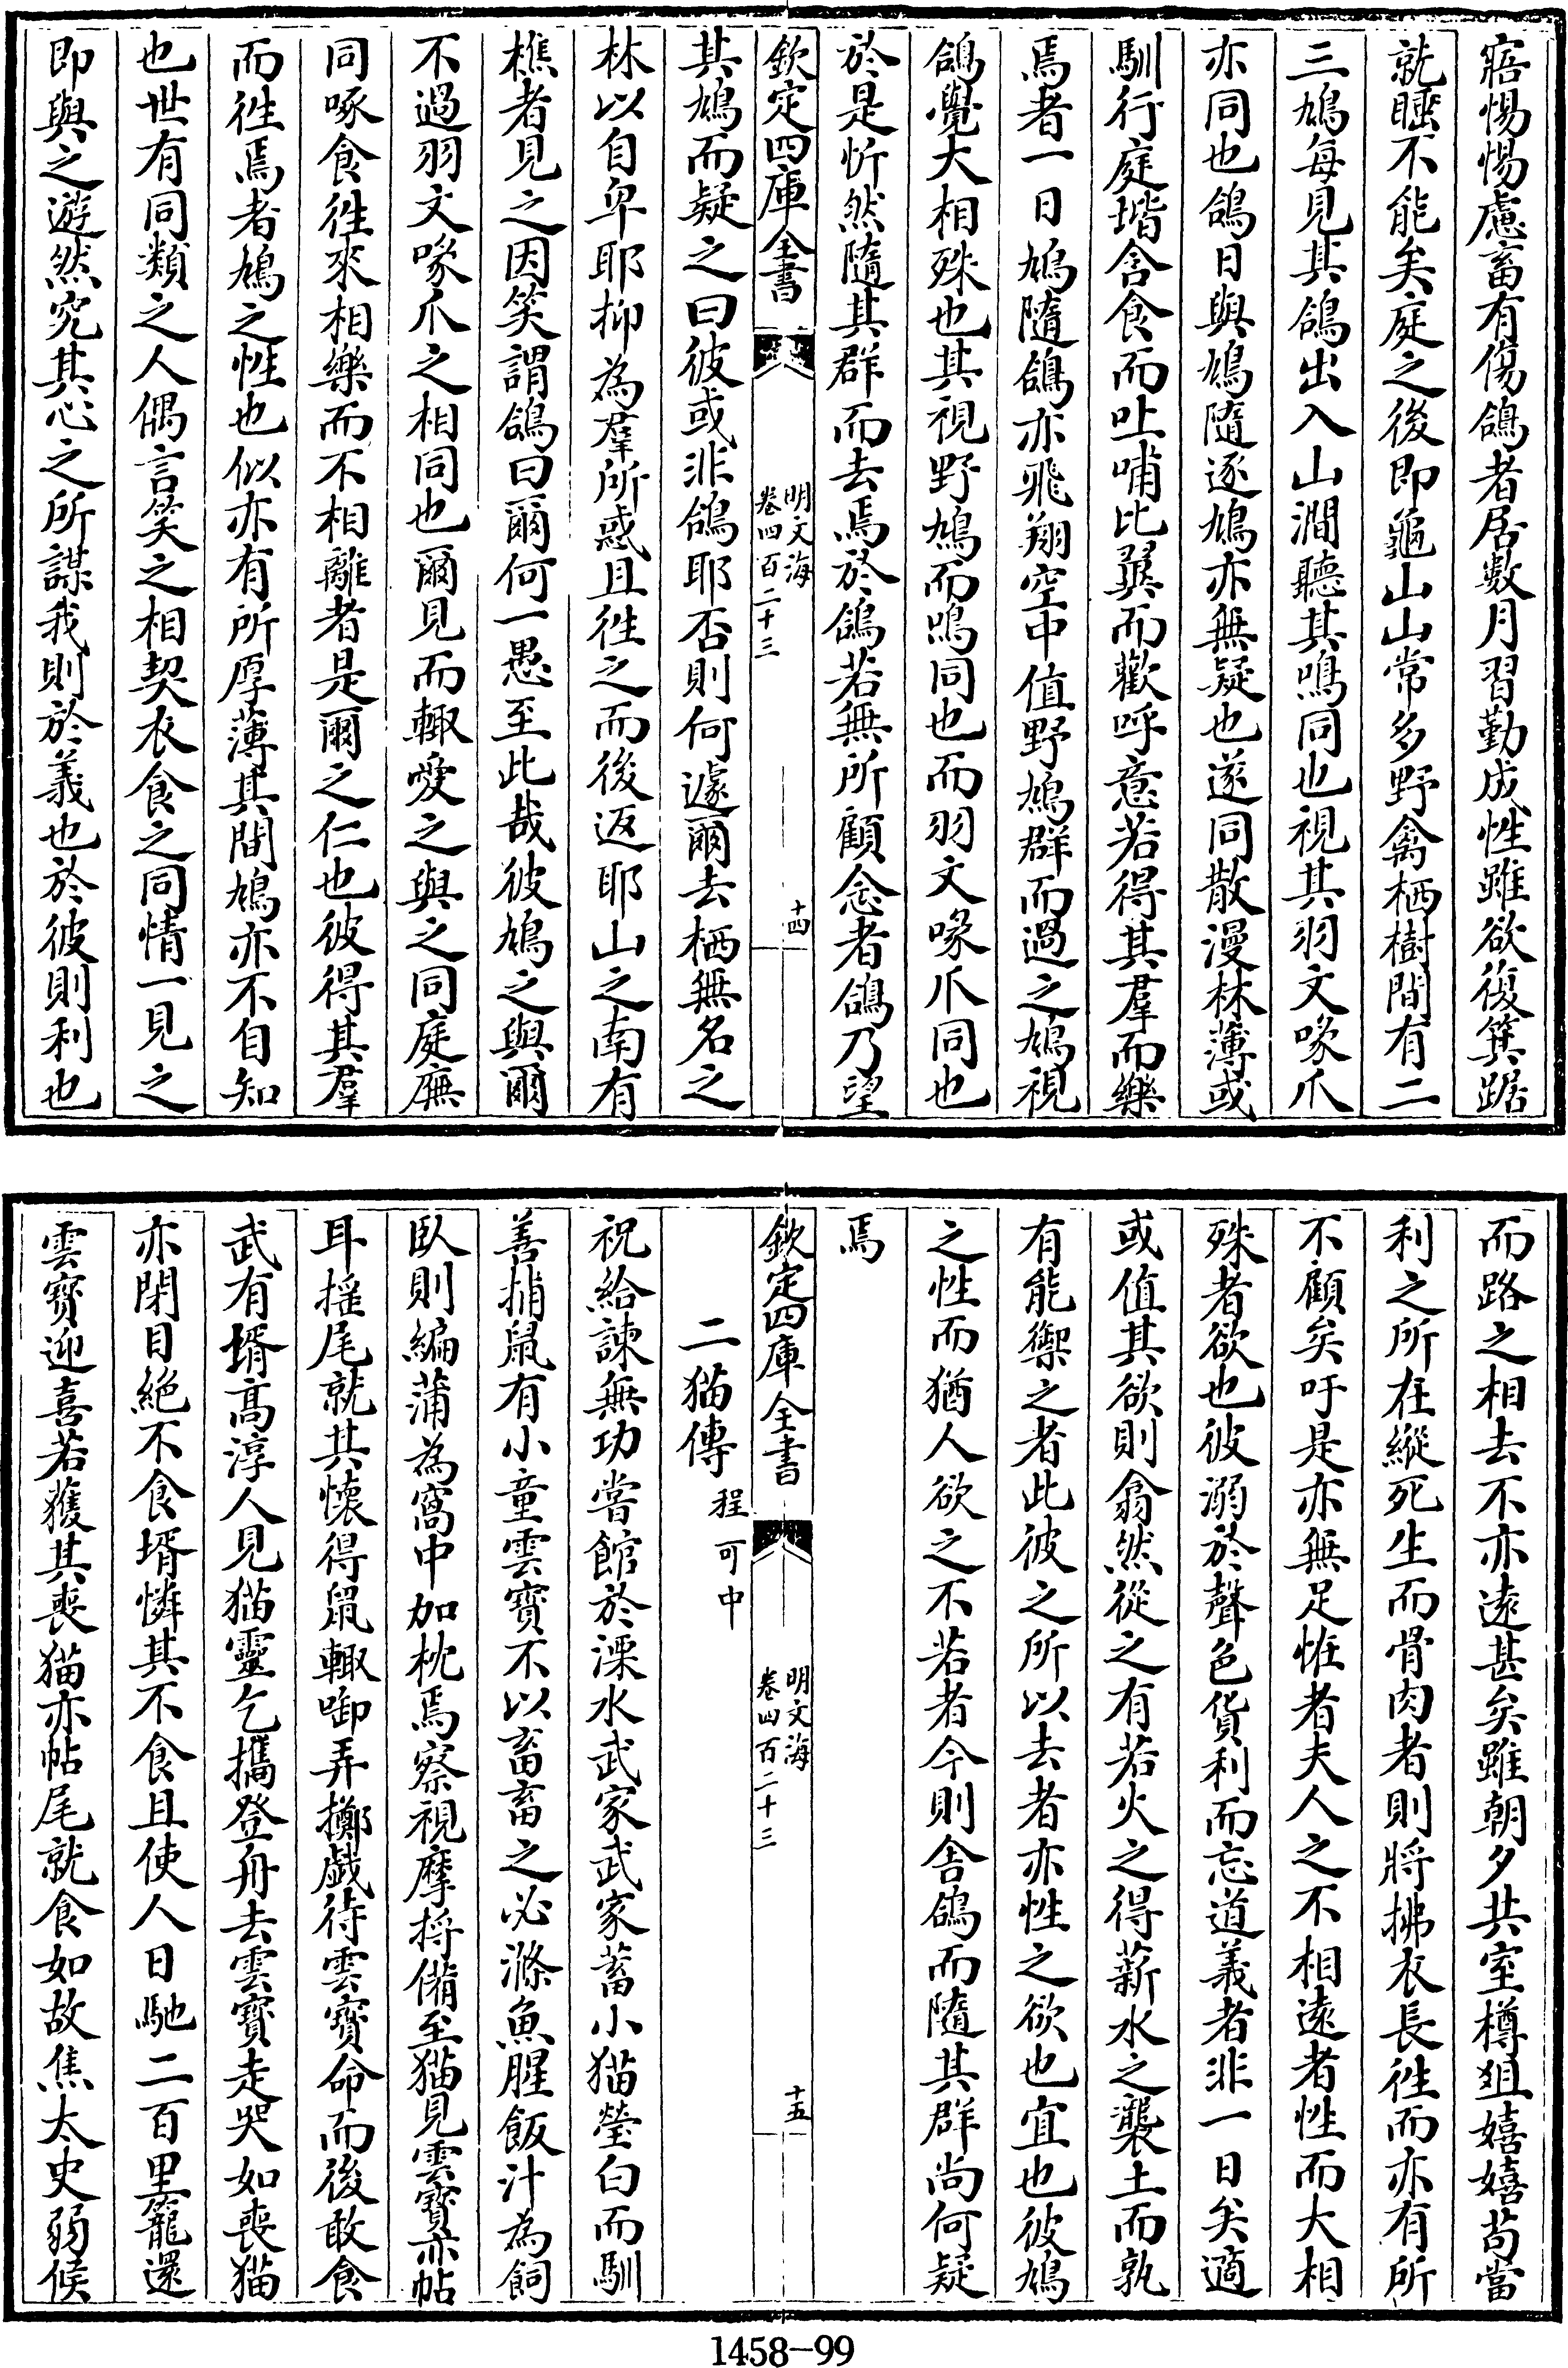 寤惕惕慮畜有傷鴿者居數月習勤成性雖欲復箕踞
就睡不能矣庭之後即龜山山常多野禽栖樹間有二
三鳩每見其鴿出入山澗聽其鳴同也視其羽文喙爪
亦同也鴿日與鳩隨逐鳩亦無疑也遂同散漫林薄或
馴行庭堦含食而吐哺比翼而歡呼意若得其羣而樂
焉者一日鳩隨鴿亦飛翔空中值野鳩群而過之鳩視
鴿覺大相殊也其視野鳩而鳴同也而羽文喙爪同也
於是忻然隨其群而去焉於鴿若無所顧念者鴿乃望
欽定四庫全書
明文海
卷四百二十三
十四
其鳩而疑之曰彼或非鴿耶否則何遽爾去栖無名之
林以自卑耶抑為羣所惑且徃之而後返耶山之南有
樵者見之因笑謂鴿曰爾何一愚至此哉彼鳩之與爾
不過羽文喙爪之相同也爾見而輙愛之與之同庭廡
同啄食徃來相樂而不相離者是爾之仁也彼得其羣
而徃焉者鳩之性也似亦有所厚薄其間鳩亦不自知
也世有同類之人偶言笑之相契衣食之同情一見之
即與之遊然究其心之所謀我則於義也於彼則利也
而路之相去不亦遠甚矣雖朝夕共室樽俎嬉嬉苟當
利之所在縱死生而骨肉者則將拂衣長徃而亦有所
不顧矣吁是亦無足恠者夫人之不相遠者性而大相
殊者欲也彼溺於聲色貨利而忘道義者非一日矣適
或值其欲則翕然從之有若火之得薪水之襲土而孰
有能禦之者此彼之所以去者亦性之欲也宜也彼鳩
之性而猶人欲之不若者今則舎鴿而隨其群尚何疑
焉
欽定四庫全書
明文海
卷四百二十三
十五
二猫傳 程可中
祝給諫無功嘗館於溧水武家武家蓄小猫瑩白而馴
善捕鼠有小童雲寳不以畜畜之必滌魚腥飯汁為飼
臥則編蒲為窩中加枕焉察視摩捋備至猫見雲寳亦帖
耳揺尾就其懐得鼠輙啣弄擲戯待雲寳命而後敢食
武有壻高淳人見猫靈乞攜登舟去雲寳走哭如喪猫
亦閉目絶不食壻憐其不食且使人日馳二百里籠還
雲寳迎喜若獲其喪猫亦帖尾就食如故焦太史弱侯
1458-99